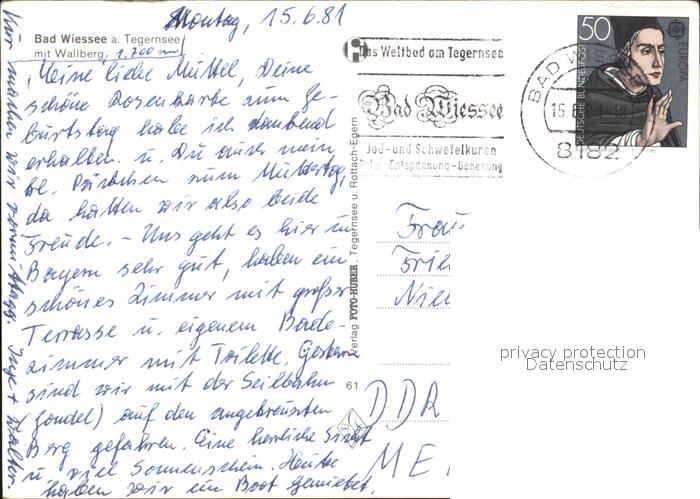 Montag, 15.6.81
Bad Wiessee a. Tegernsee
mit Wallberg, 1.700 m
Meine liebe Muttel, Deine
schöne Rosenkarte zum Ge-
burtstag habe ich dankend
erhalten u. Du auch mein
Päckchen zum Muttertag,
da hatten wir also beide
Freude. - Uns geht es hier in
Bayern sehr gut, haben ein
schönes Zimmer mit großer
Terrasse u. eigenem Bade-
zimmer mit Toilette. Gestern
sind wir mit der Seilbahn
(Gondel) auf den angekreuzten
Berg gefahren. Eine herrliche Sicht
u. viel Sonnenschein. Heute
haben wir ein Boot gemietet.
Hier machen wir vormittags. Inge + Walter.
Verlag FOTO-HUBER, Tegernsee u. Rottach-Egern
61
Das Weltbad am Tegernsee
Bad Wiessee
Jod- und Schwefelkuren
Entspannung - Genesung
BAD WIE
15.6.
8182
50
EUROPA
DEUTSCHE BUNDESPOST
Frau
Frie
Nie
DDR
ME
privacy protection
Datenschutz